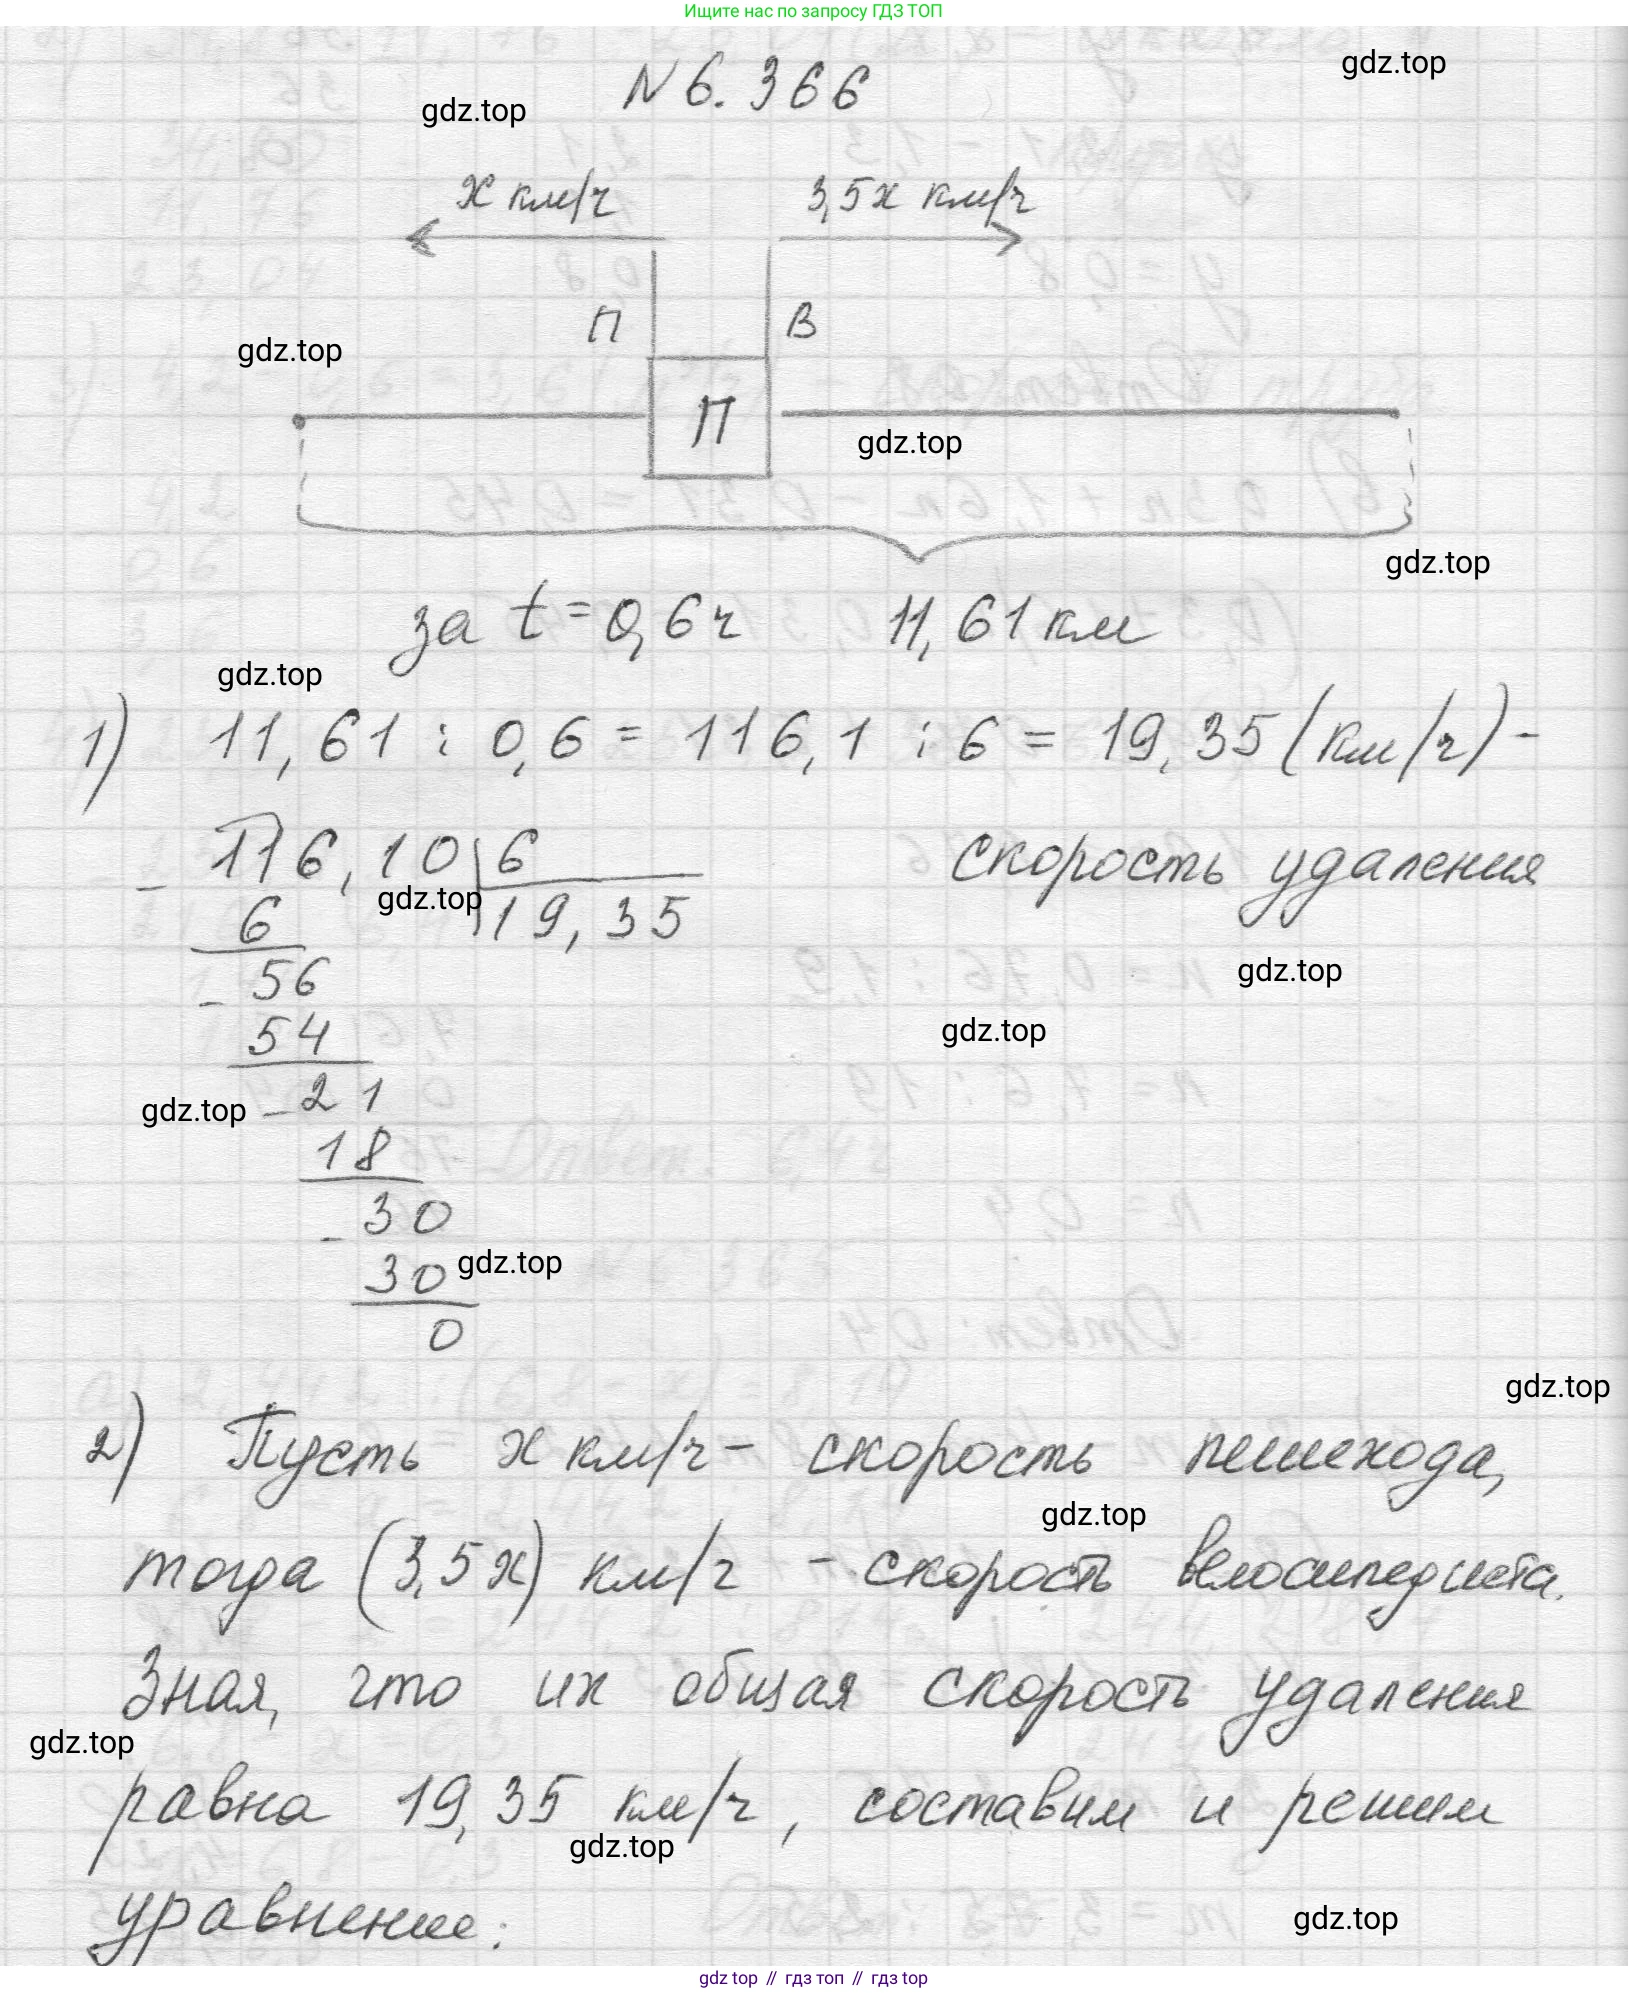 Ищите нас по запросу ГДЗ ТОП
gdz.top
N 6.366
gdz.top
x км/ч 3,5x км/ч
П В
gdz.top
П
gdz.top
gdz.top
за t = 0,6 ч 11,61 км
gdz.top
1) 11,61 : 0,6 = 116,1 : 6 = 19,35 (км/ч) -
скорость удаления
- 116,10 6
gdz.top
6 19,35
- 56
gdz.top
54
gdz.top
gdz.top
- 21
18
- 30
30
gdz.top
0
gdz.top
2) Пусть x км/ч - скорость пешехода,
gdz.top
тогда (3,5x) км/ч - скорость велосипедиста.
Зная, что их общая скорость удаления
gdz.top
равна 19,35 км/ч, составим и решим
gdz.top
уравнение:
gdz.top
gdz top // гдз топ // гдз top